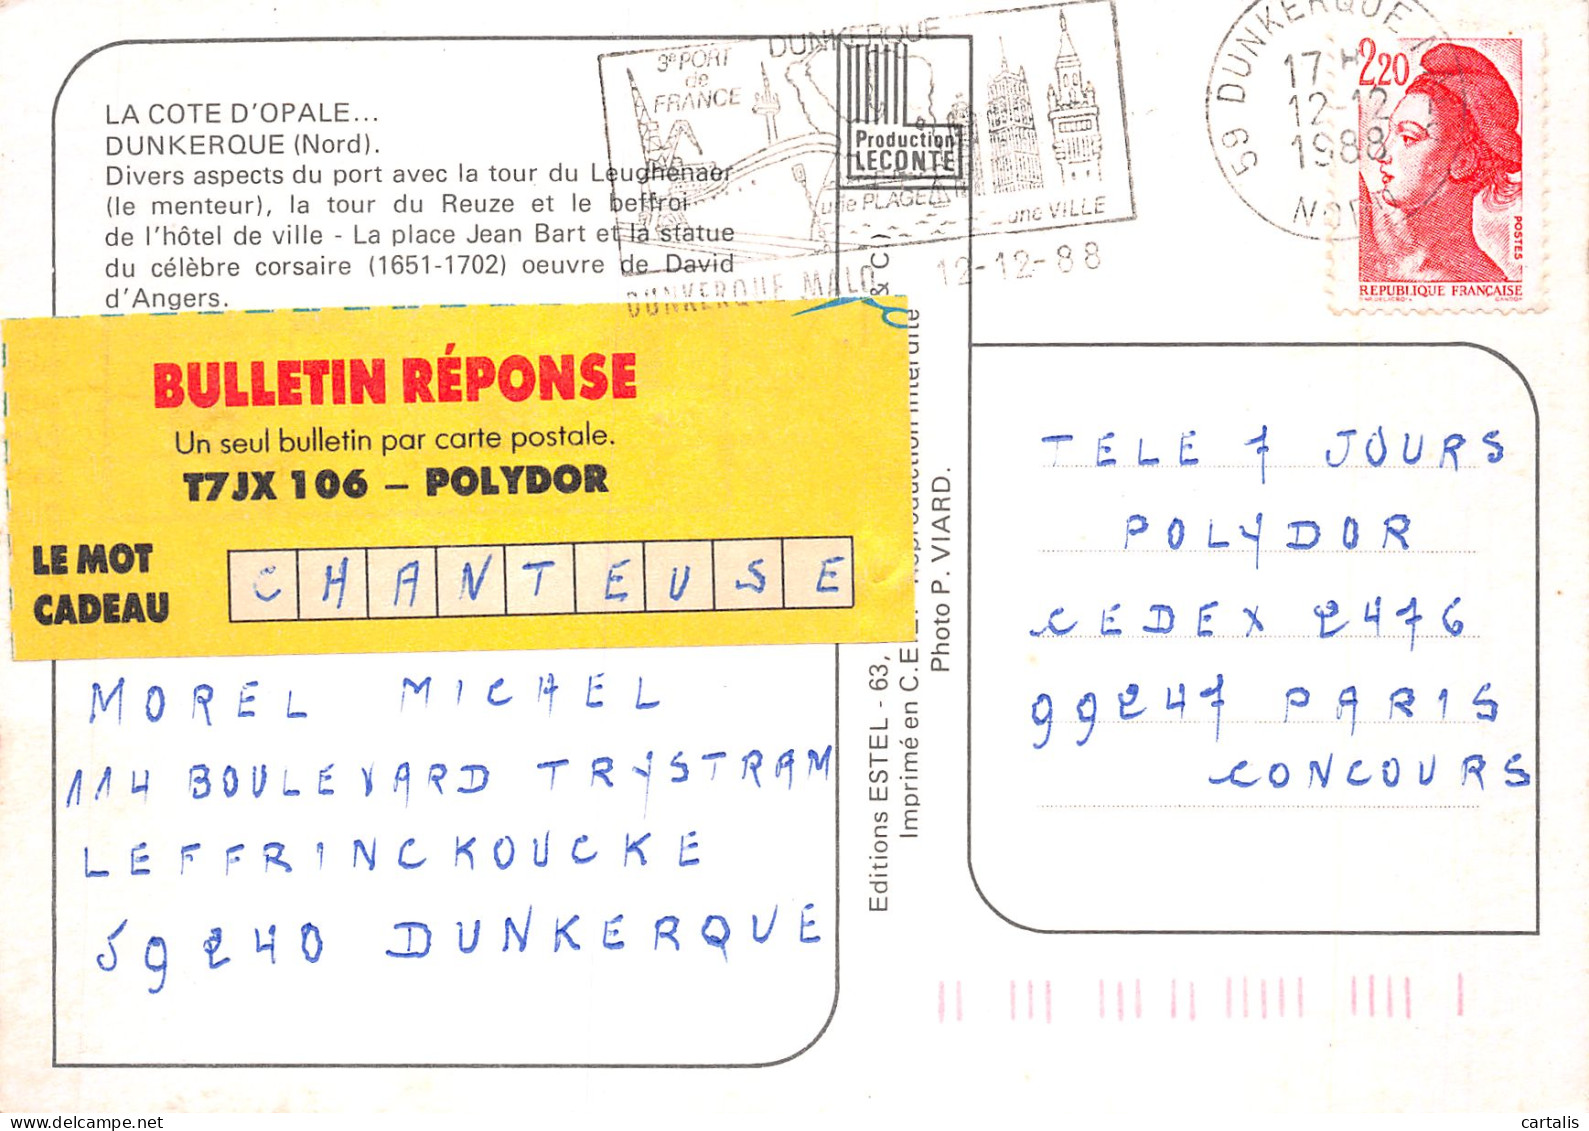 LA COTE D'OPALE...
DUNKERQUE (Nord).
Divers aspects du port avec la tour du Leughenaer
(le menteur), la tour du Reuze et le beffroi
de l'hôtel de ville - La place Jean Bart et la statue
du célèbre corsaire (1651-1702) oeuvre de David
d'Angers.
3e PORT
de
FRANCE
DUNKERQUE
une PLAGE
une VILLE
DUNKERQUE MALO
12-12-88
Production
LECONTE
59 DUNKERQUE
17 H
12-12
1988
NORD
2,20
POSTES
REPUBLIQUE FRANÇAISE
BULLETIN RÉPONSE
Un seul bulletin par carte postale.
T7JX 106 – POLYDOR
LE MOT
CADEAU
CHANTEUSE
MOREL MICHEL
114 BOULEVARD TRYSTRAM
LEFFRINCKOUCKE
59240 DUNKERQUE
Editions ESTEL - 63,
Imprimé en C.E.E. - Reproduction interdite
Photo P. VIARD.
TELE 7 JOURS
POLYDOR
CEDEX 2476
99247 PARIS
CONCOURS
cartalis